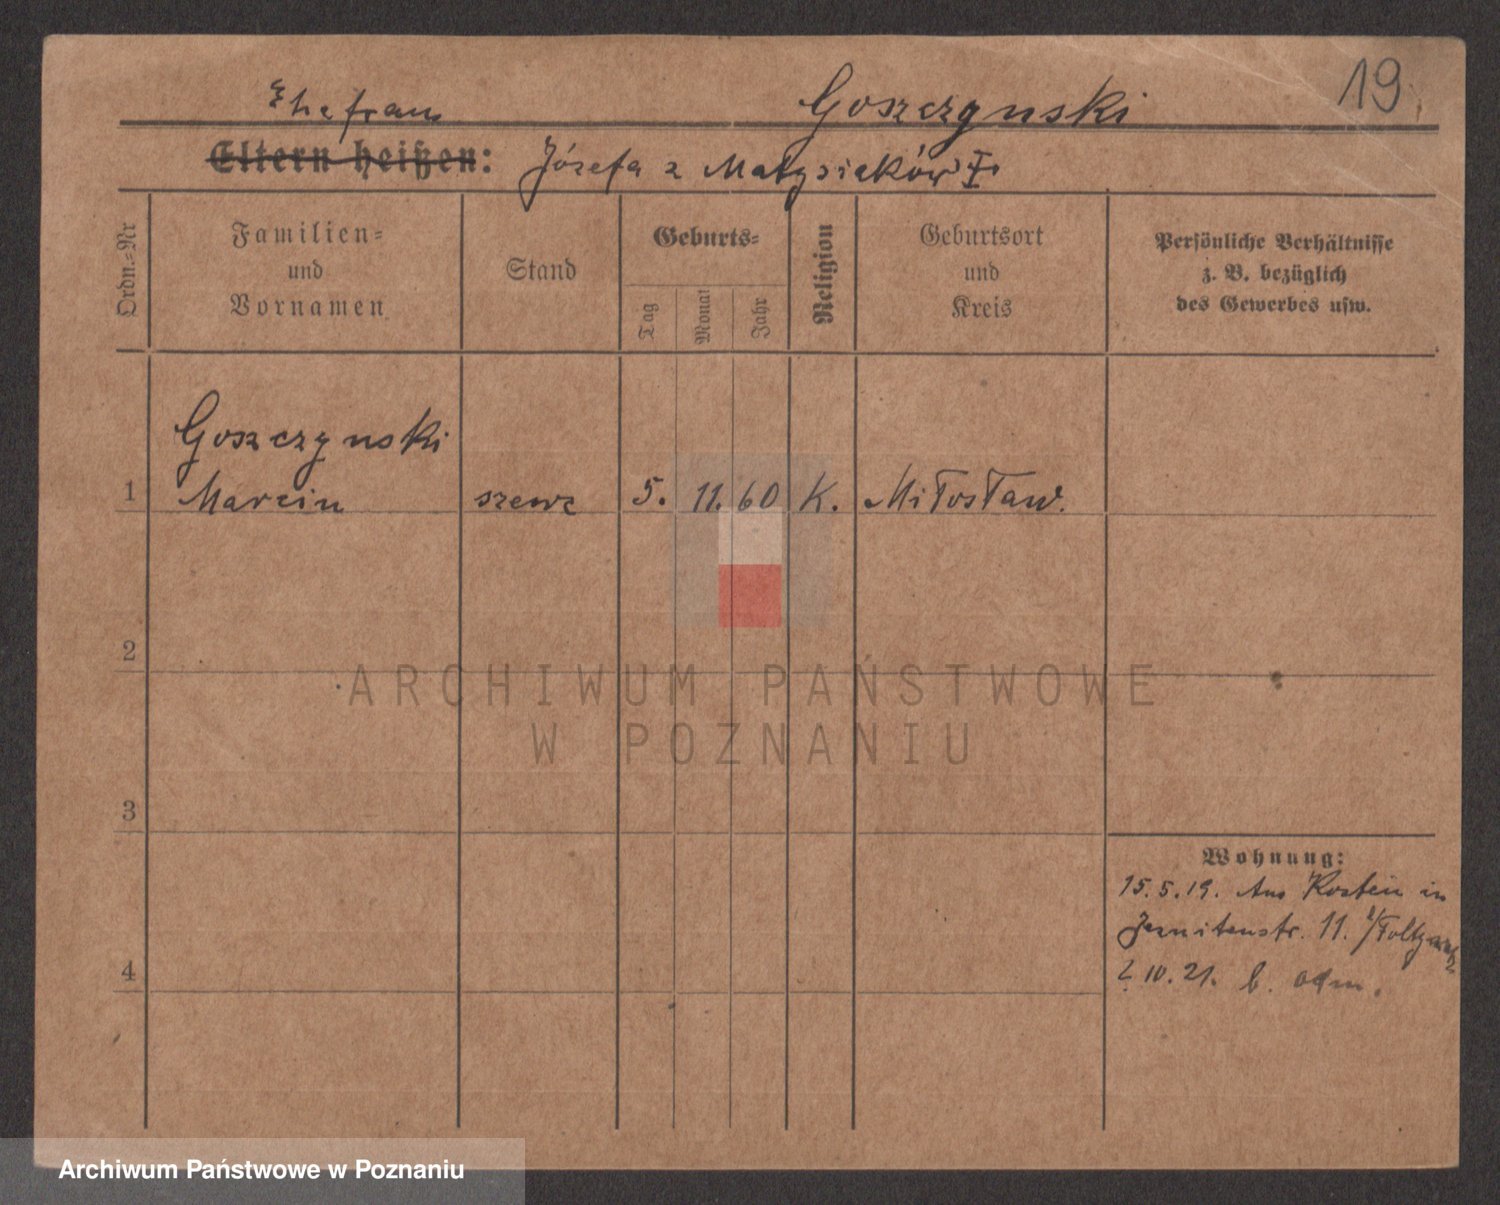 19
Ehefrau Goszczynski
Eltern heißen: Józefa z Matysiaków I
Ordn.-Nr
Familien-
und
Vornamen
Stand
Geburts-
Tag
Monat
Jahr
Religion
Geburtsort
und
Kreis
Persönliche Verhältnisse
z. B. bezüglich
des Gewerbes usw.
Goszczynski
1 Marcin szewc 5. 11. 60 K. Miłosław.
2
3
4
Wohnung:
15.5.19. Aus Kosten in
Jesuitenstr. 11.
2 10. 21. b. odm.
ARCHIWUM PAŃSTWOWE
W POZNANIU
Archiwum Państwowe w Poznaniu